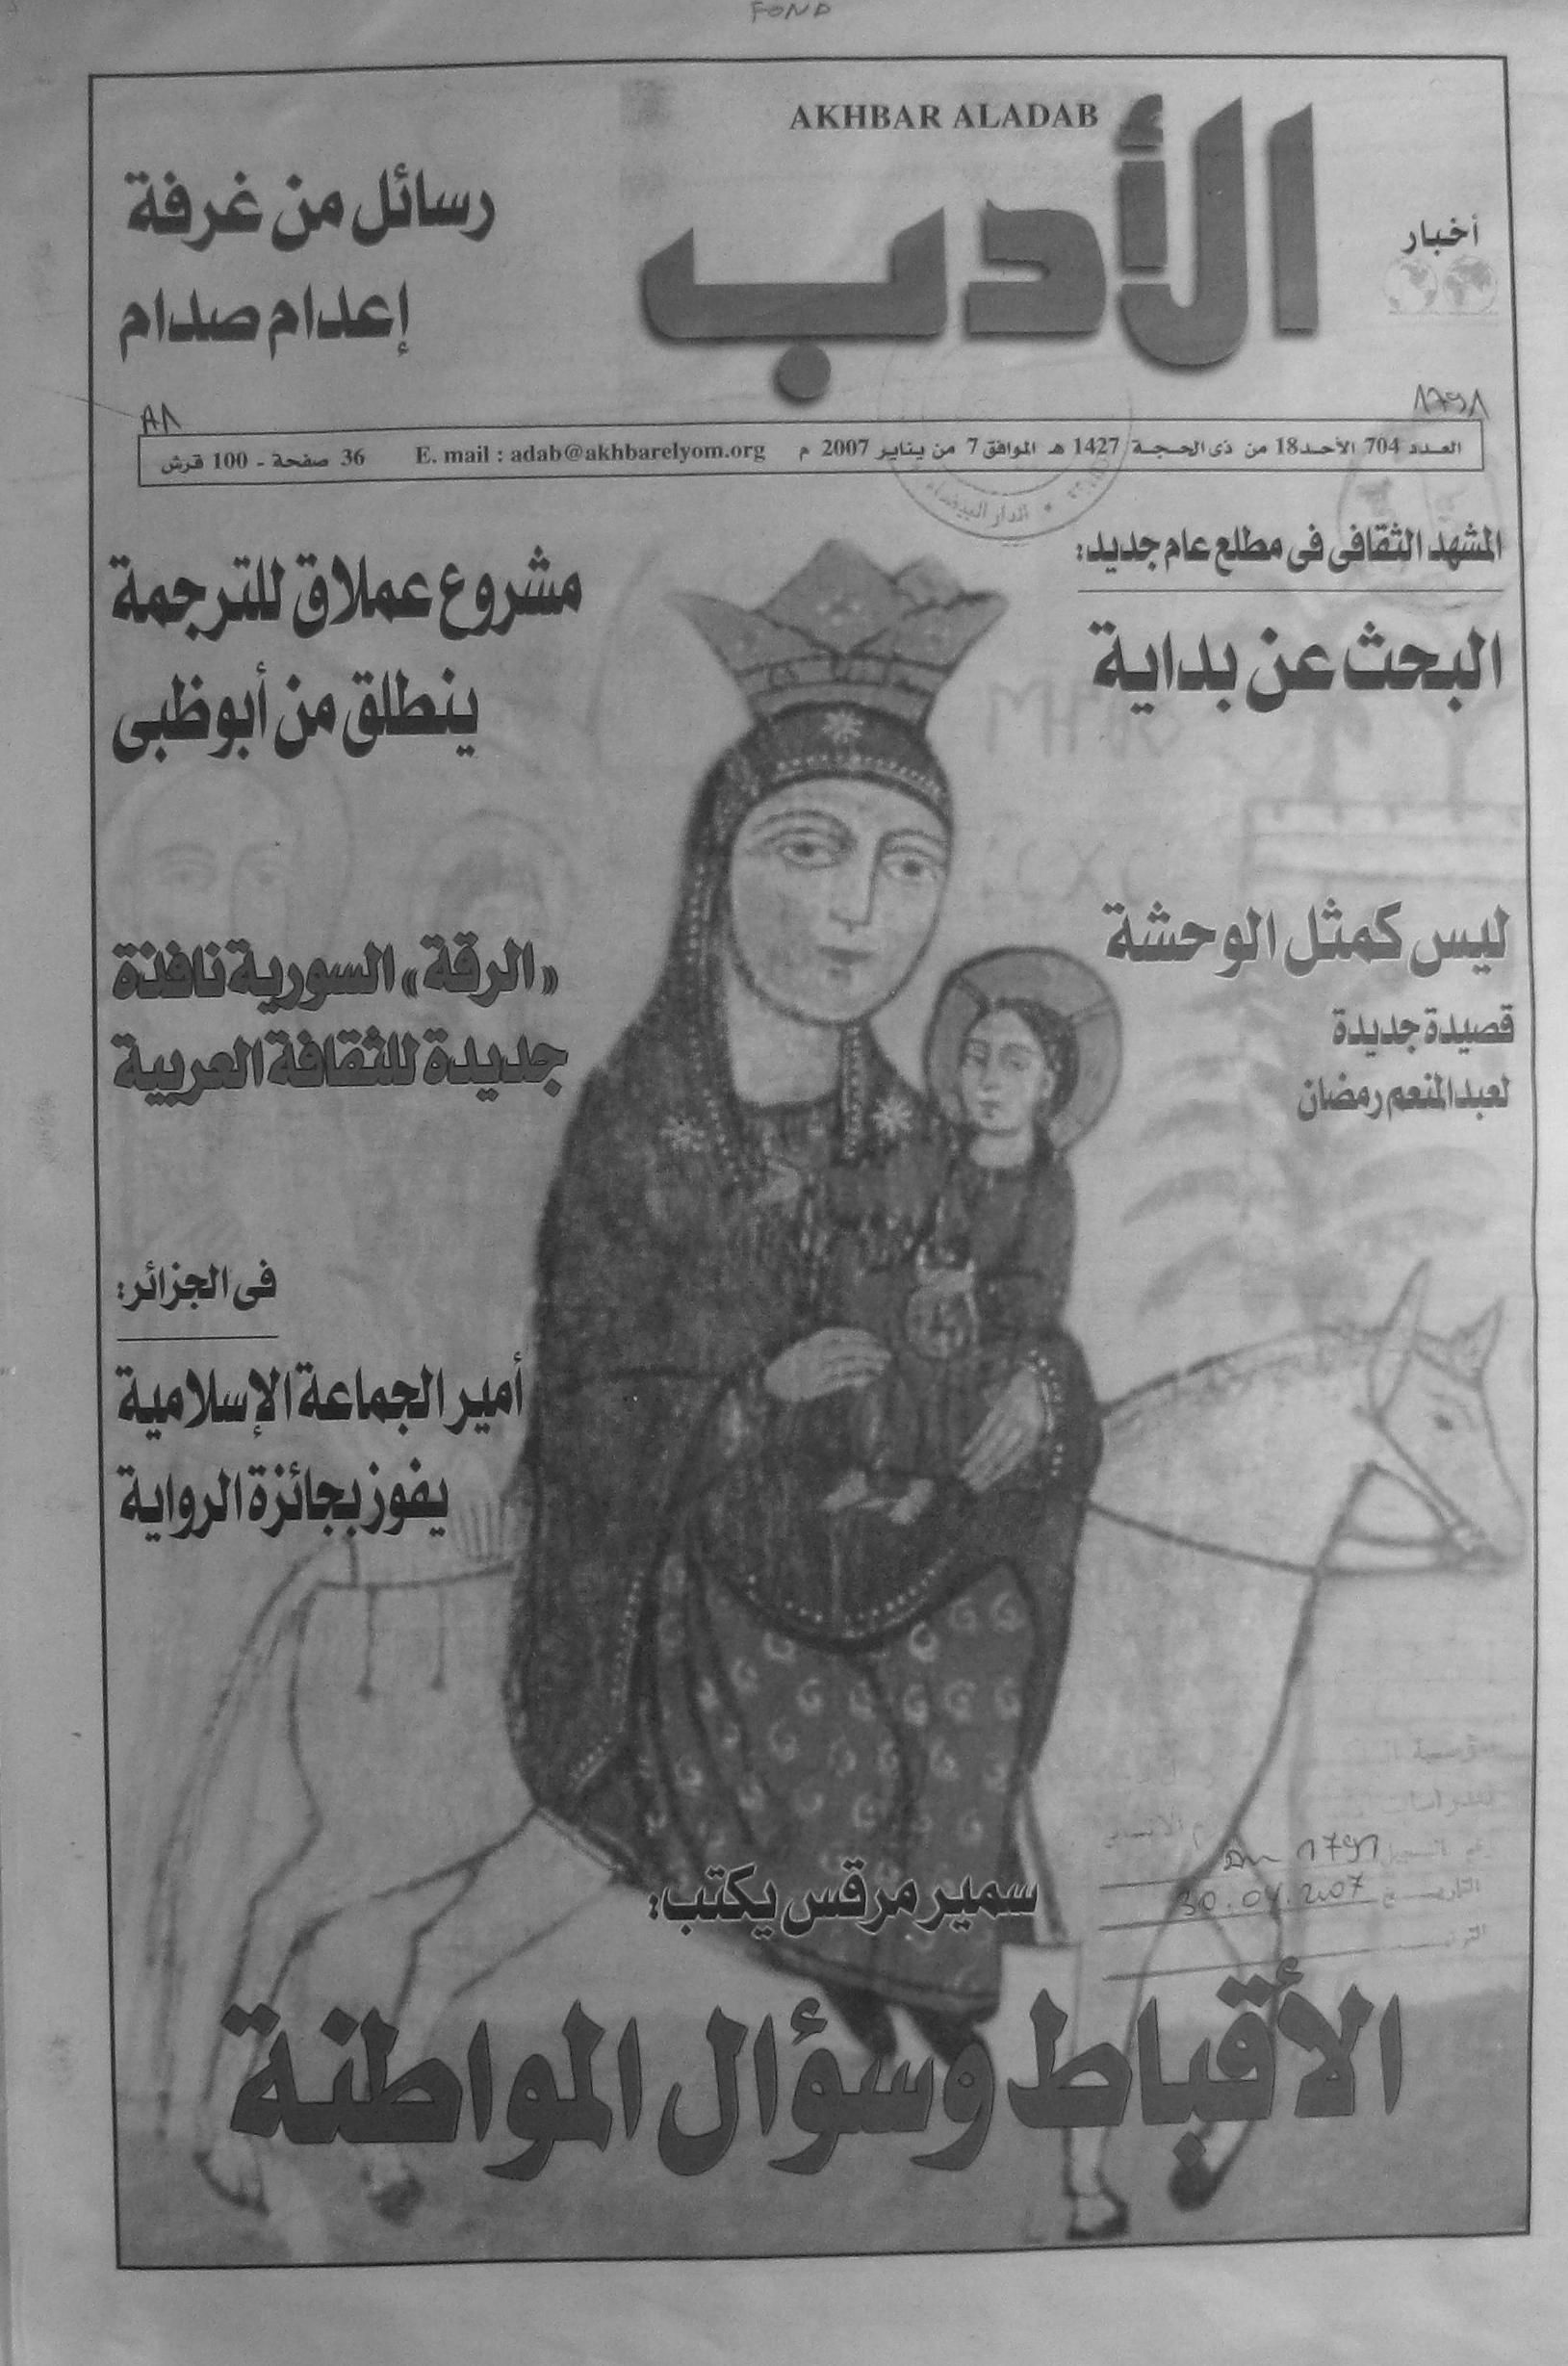 FOND
AKHBAR ALADAB
أخبار
الأدب
رسائل من غرفة
إعدام صدام
العدد 704 الأحد 18 من ذى الحجة 1427 هـ الموافق 7 من يناير 2007 م E. mail : adab@akhbarelyom.org 36 صفحة - 100 قرش
الدار البيضاء
المشهد الثقافى فى مطلع عام جديد:
البحث عن بداية
مشروع عملاق للترجمة
ينطلق من أبوظبى
ليس كمثل الوحشة
قصيدة جديدة
لعبدالمنعم رمضان
«الرقة» السورية نافذة
جديدة للثقافة العربية
فى الجزائر:
أمير الجماعة الإسلامية
يفوز بجائزة الرواية
التاريخ 30.04.2007
سمير مرقس يكتب:
الأقباط وسؤال المواطنة